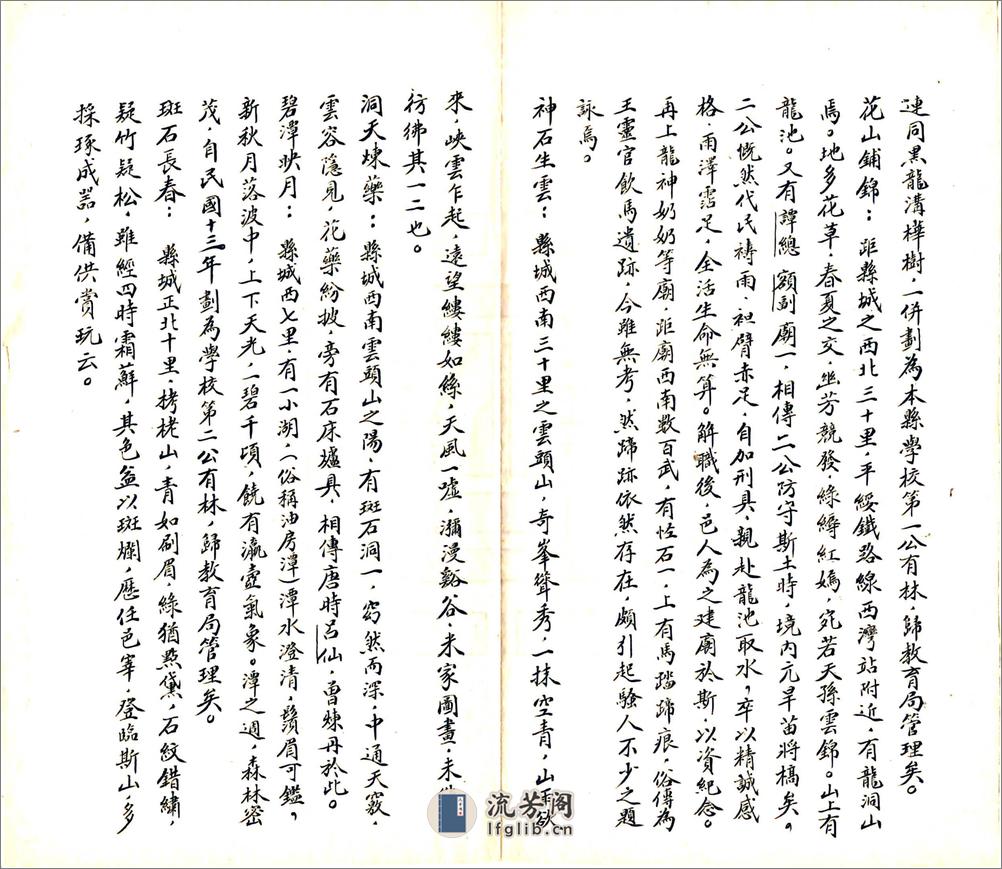 連同黑龍溝樺樹，一併劃為本縣學校第一公有林，歸教育局管理矣。
花山鋪錦：距縣城之西北三十里，平綏鐵路線西灣站附近，有龍洞山
焉。地多花草，春夏之交，幽芳競發，綠縟紅嫣，宛若天孫雲錦。山上有
龍池。又有譚總額副廟一，相傳二公防守斯土時，境內亢旱苗將槁矣，
二公慨然代民禱雨，袒臂赤足，自加刑具，親赴龍池取水，卒以精誠感
格，雨澤霑足，全活生命無算。解職後，邑人為之建廟於斯，以資紀念。
再上龍神奶奶等廟，距廟西南數百武，有怪石一，上有馬踏蹄痕，俗傳為
王靈官飲馬遺跡，今雖無考，然蹄跡依然存在，頗引起騷人不少之題
詠焉。
神石生雲：縣城西南三十里之雲頭山，奇峯聳秀，一抹空青，山雨欲
來，峽雲乍起，遠望縷縷如絲，天風一噓，瀰漫谿谷，米家圖畫，未
彷彿其一二也。
洞天煉藥：縣城西南雲頭山之陽，有斑石洞一，窈然而深，中通天竅，
雲容隱見，花藥紛披，旁有石床爐具，相傳唐時呂仙，曾煉丹於此。
碧潭映月：縣城西七里，有一小湖，（俗稱油房潭）潭水澄清，鬚眉可鑑，
新秋月落波中，上下天光，一碧千頃，饒有瀛壺氣象。潭之週，森林密
茂，自民國十三年劃為學校第二公有林，歸教育局管理矣。
斑石長春：縣城正北十里，栲栳山，青如刷眉綠猶點黛，石紋錯繡，
疑竹疑松，雖經四時霜蘚，其色益以斑爛，歷任邑宰，登臨斯山，多
採琢成器，備供賞玩云。
流芳阁
lfglib.cn